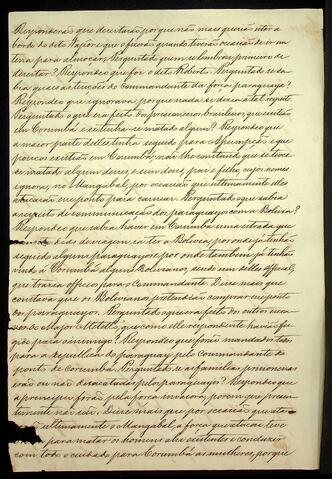 Responderão que desertarão por que não mais queria estar a
bordo do dito Vapor e que o fizerão quando tiverão occasião de ir em
terra para almoçar. Perguntado quem se lembrou primeiro de
desertar? Respondeo que foi o dito Roberto. Perguntado se sa-
bia quaes as tenções do Commandante da força paraguaya?
Respondeo que ignorava, porque nada se dizia a tal respeito.
Perguntado o que era feito dos prisioneiros brasileiros, que existião
em Corumbá, e se tinha-se matado algum? Respondeo que
a maior parte delles tinha seguido para Assumpção e que
poucos existião em Corumbá, não lhe constando que se tivesse
se matado algum desses, e sim dous, pai e filho cujos nomes
ignora, no Mangabal, por occasião que ultimamente elles
atacarão esse ponto para carnear. Perguntado o que sabia
a respeito de communicação dos paraguayos com a Bolivia?
Respondeo que sabia haver em Corumbá uma estrada que
dias de viagem, ia ter a Bolivia, por onde já tinhão
seguido alguns paraguayos e por onde tambem já tinhão
vindo a Corumbá alguns Bolivianos, sendo um delles official,
que trazia officio para o Commandante. Disse mais que
constava que os Bolivianos pretendião comprar
dos paraguayos. Perguntado o que era feito dos outros escra-
vos do Major Metello, que como elle respondente havião fu-
gido para o inimigo? Respondeo que forão mandados todos
para a republica do paraguay pelo Commandante do
ponto de Corumbá. Perguntado se as familias prisioneiras
erão ou não desacatadas pelos paraguayos? Respondeo que
a principio forão, pela força invasora, porem que presen-
temente não são. Disse mais que por occasião que ata-
ultimamente o Mangabal, a força que atacou teve
para matar os homens alli existentes e conduzir
com todo o cuidado para Corumbá as mulheres, porque